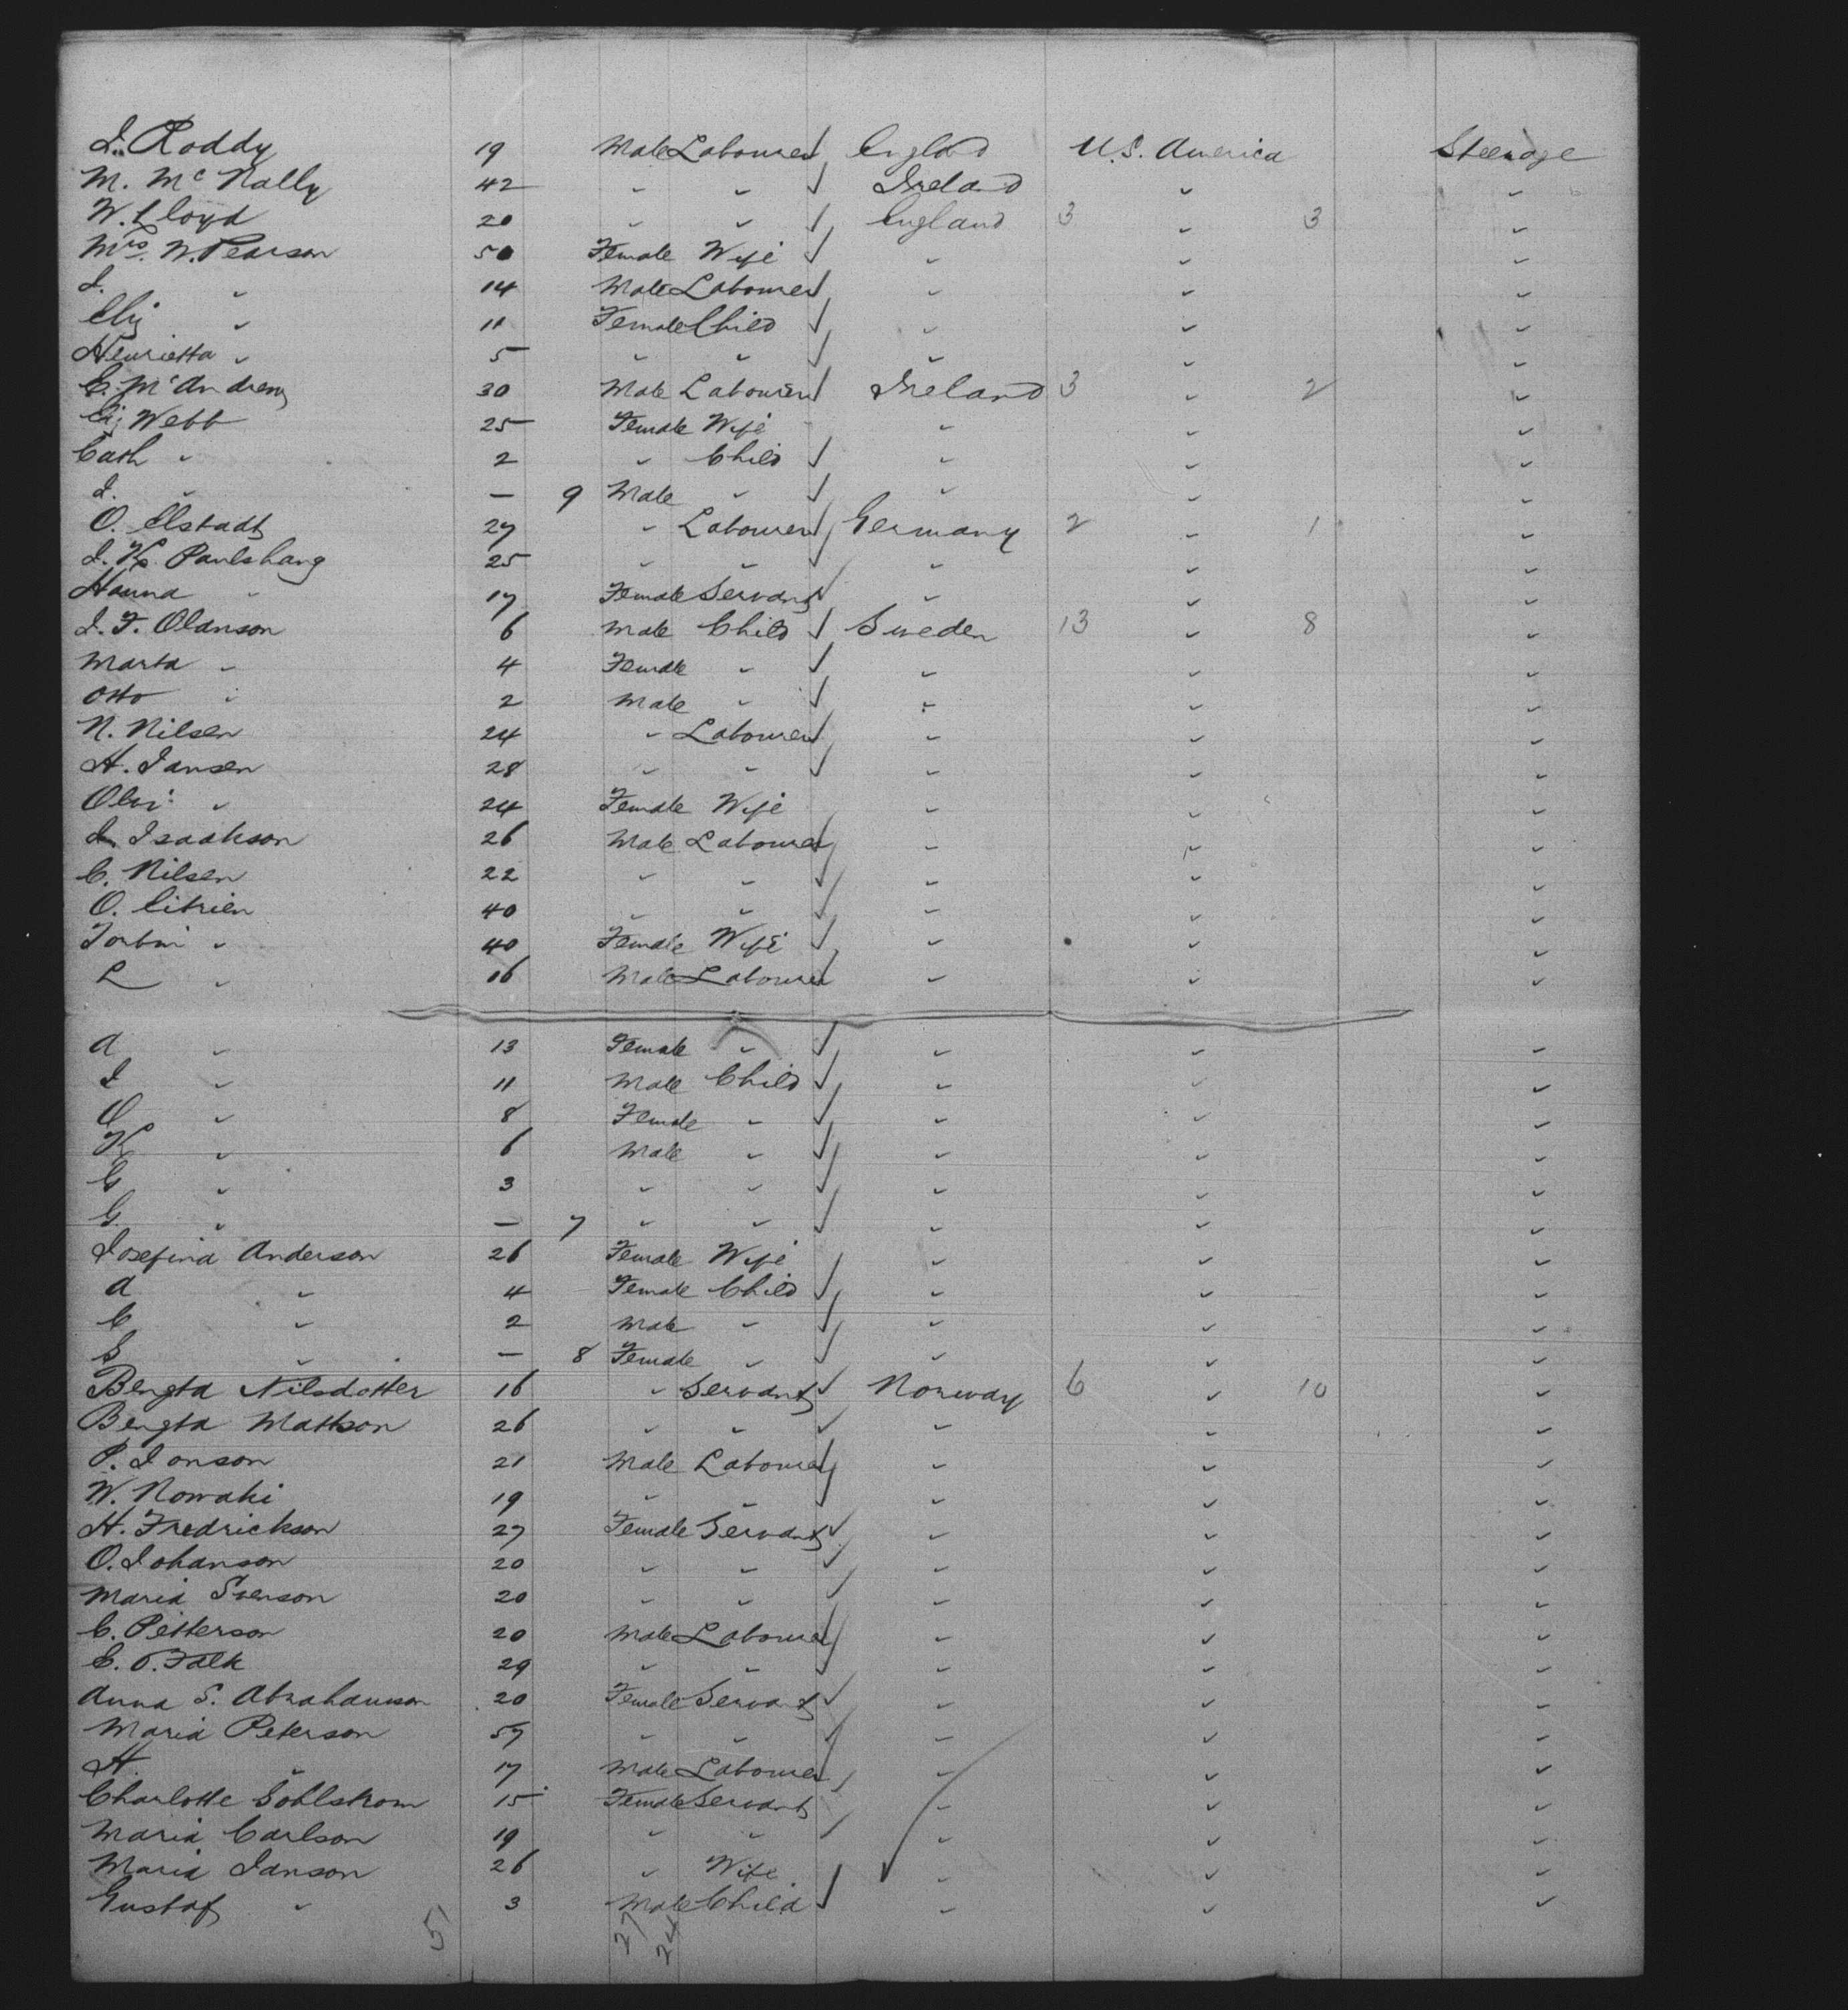 I. Roddy 19 Male Labourer England U.S. America Steerage
M. McNally 42 " " Ireland " "
W. Lloyd 20 " " England 3 " 3 "
Mrs. W. Pearson 50 Female Wife " " "
I. " 14 Male Labourer " " "
Eliz " 11 Female Child " " "
Henrietta " 5 " " " " "
C. McAndrew 30 Male Labourer Ireland 3 " 2 "
Eliz Webb 25 Female Wife " " "
Cath " 2 " Child " " "
I. " — 9 Male " " " "
O. Elstadt 27 " Labourer Germany 2 " 1 "
I. K. Paulshang 25 " " " " "
Hanna " 17 Female Servant " " "
I. F. Olanson 6 Male Child Sweden 13 " 8 "
Marta " 4 Female " " " "
Otto " 2 Male " " " "
N. Nilsen 24 " Labourer " " "
A. Iansen 28 " " " " "
" 24 Female Wife " " "
Isaakson 26 Male Labourer " " "
C. Nilsen 22 " " " " "
O. Citrien 40 " " " " "
" 40 Female Wife " " "
L " 16 Male Labourer " " "
A " 13 Female " " " "
I " 11 Male Child " " "
O " 8 Female " " " "
K " 6 Male " " " "
C " 3 " " " " "
G. " — 7 " " " " "
Josefina Anderson 26 Female Wife " " "
A " 4 Female Child " " "
C " 2 Male " " " "
S " — 8 Female " " " "
Bengta Nilsdotter 16 " Servant Norway 6 " 10 "
Bengta Mattson 26 " " " " "
P. Ionson 21 Male Labourer " " "
W. Nowaki 19 " " " " "
H. Fredrickson 27 Female Servant " " "
O. Iohanson 20 " " " " "
Maria Svenson 20 " " " " "
C. Petterson 20 Male Labourer " " "
C. O. Falk 29 " " " " "
Anna S. Abrahamson 20 Female Servant " " "
Maria Peterson 57 " " " " "
H. " 17 Male Labourer " " "
Charlotte Sohlstrom 15 Female Servant " " "
Maria Carlson 19 " " " " "
Maria Ianson 26 " Wife " " "
Gustaf " 3 Male Child " " "
51 27 24